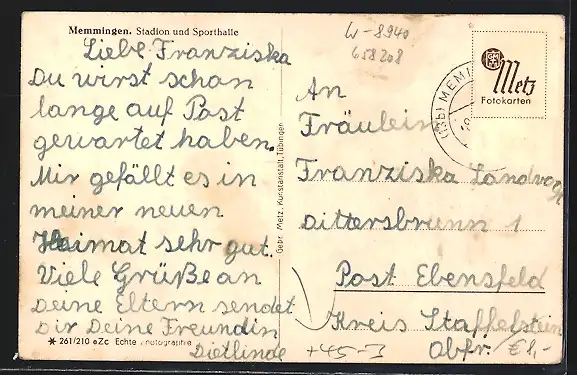 Memmingen. Stadion und Sporthalle
Liebe Franziska
Du wirst schon
lange auf Post
gewartet haben.
Mir gefällt es in
meiner neuen
Heimat sehr gut.
Viele Grüße an
Deine Eltern sendet
Dir Deine Freundin
Dietlinde
* 261/210 eZc Echte Photographie
Gebr. Metz, Kunstanstalt, Tübingen
W-8940
658208
(13b) MEMM
Metz
Fotokarten
An
Fräulein
Franziska
Dittersbrunn 1
Post Ebensfeld
Kreis Staffelstein
Obfr. € 1,-
+45-3